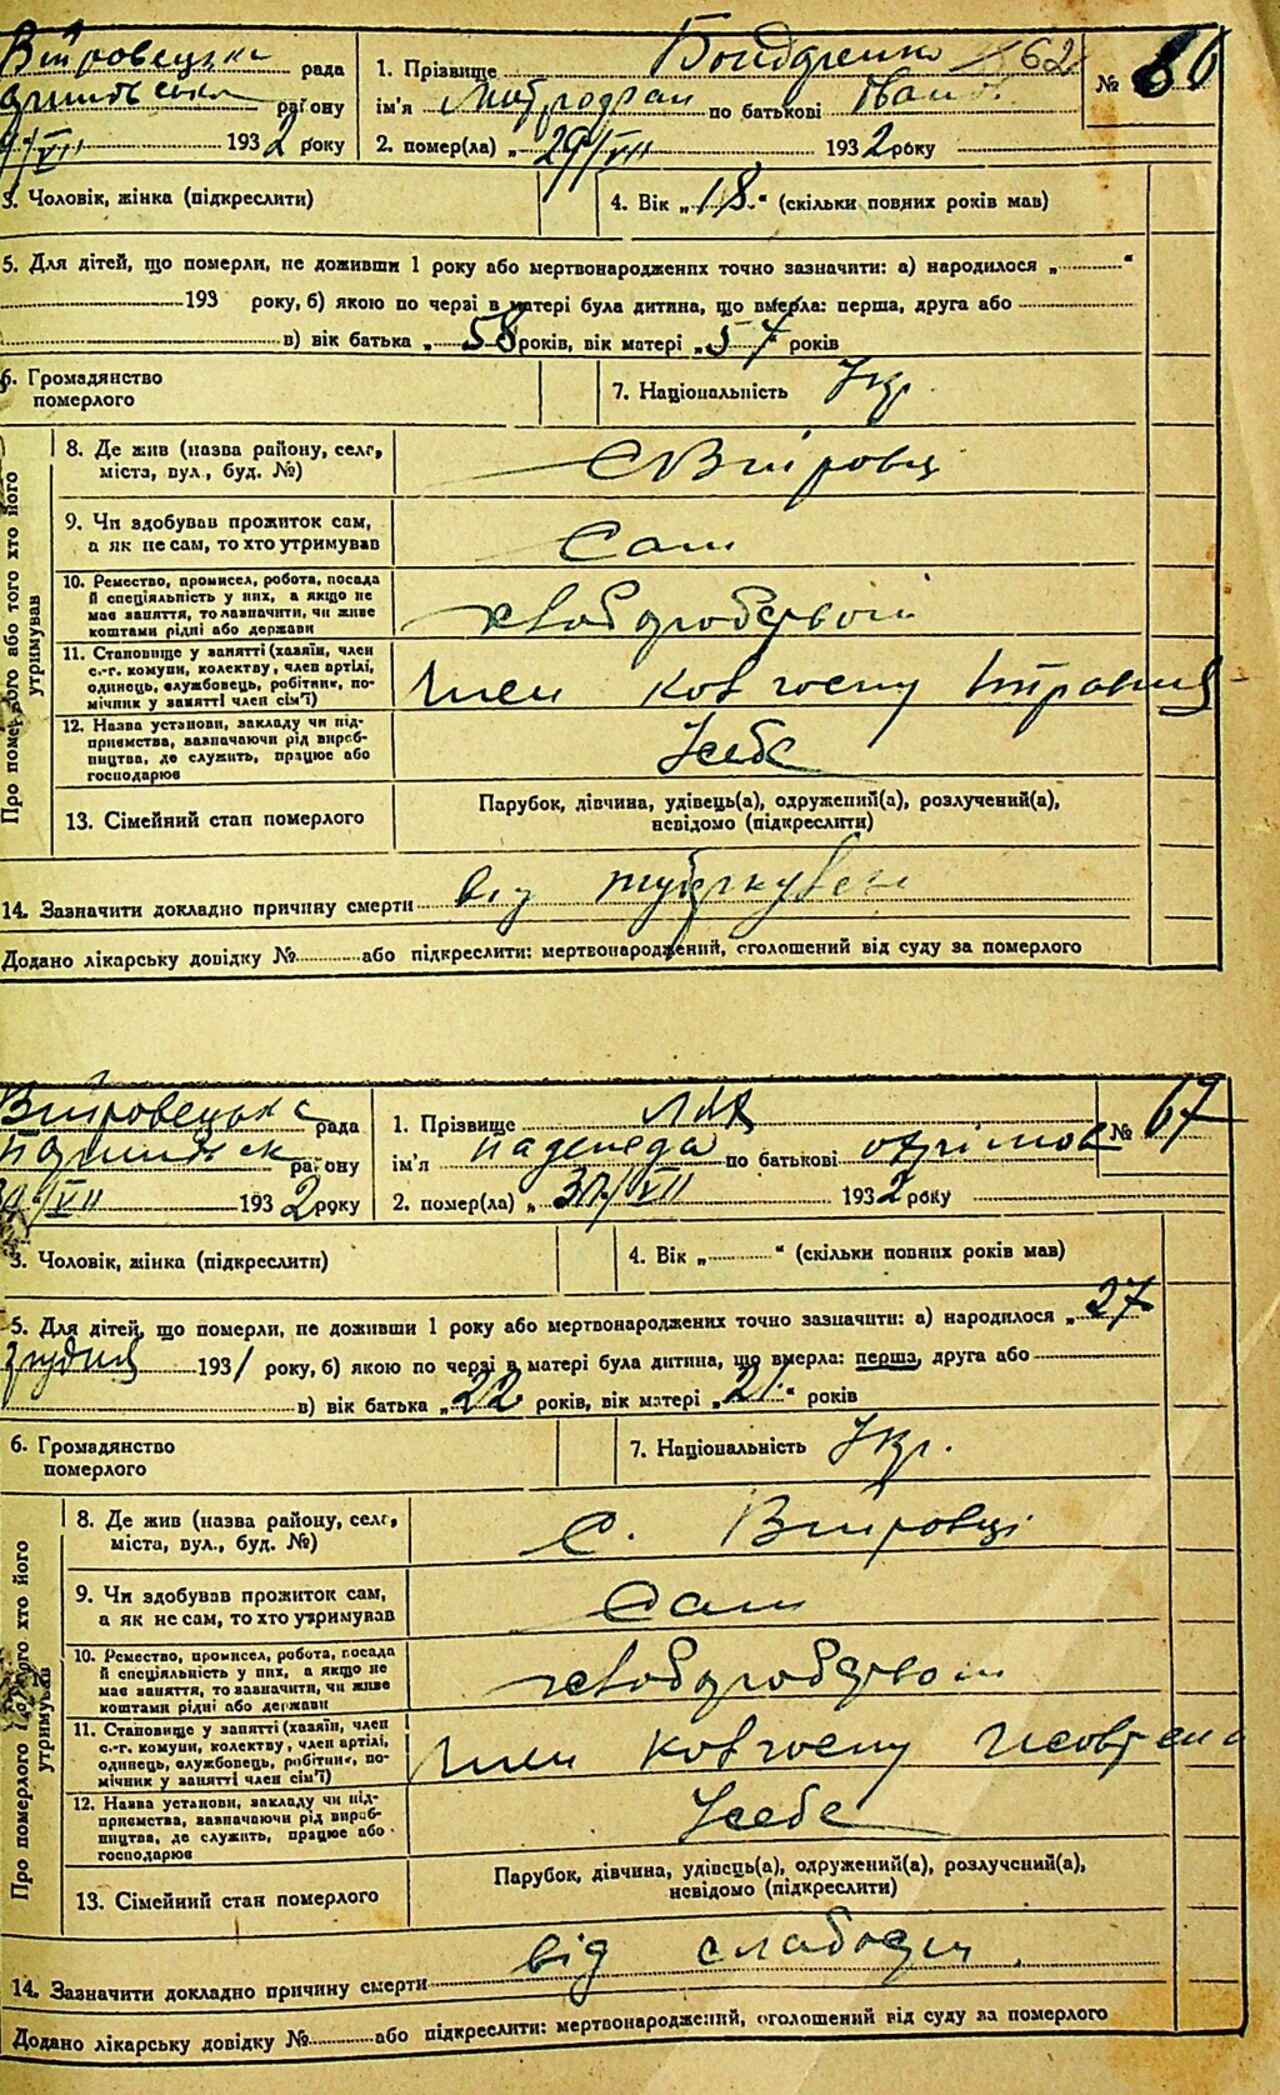 рада
району
1932 року
1. Прізвище Бондаренко 62
ім'я Митрофан по батькові Іванов
2. помер(ла) „29/VII 1932 року
№ 66
3. Чоловік, жінка (підкреслити)
4. Вік „18" (скільки повних років мав)
5. Для дітей, що померли, не доживши 1 року або мертвонароджених точно зазначити: а) народилося „ "
193 року, б) якою по черзі в матері була дитина, що вмерла: перша, друга або
в) вік батька „58 років, вік матері „57" років
6. Громадянство
померлого
7. Національність Укр.
Про померлого або того хто його
утримував
8. Де жив (назва району, село,
міста, вул., буд. №)
с Вітровці
9. Чи здобував прожиток сам,
а як не сам, то хто утримував
Сам
10. Ремество, промисел, робота, посада
й спеціяльність у них, а якщо не
має заняття, то зазначити, чи живе
коштами рідні або держави
хліборобством
11. Становище у занятті (хазяїн, член
с.-г. комуни, колективу, член артілі,
одинець, службовець, робітник, по-
мічник у занятті член сім'ї)
Член колгоспу
12. Назва установи, закладу чи під-
приємства, зазначаючи рід вироб-
ництва, де служить, працює або
господарює
У себе
13. Сімейний стан померлого
Парубок, дівчина, удівець(а), одружений(а), розлучений(а),
невідомо (підкреслити)
14. Зазначити докладно причину смерти від туберкульозу
Додано лікарську довідку № або підкреслити: мертвонароджений, оголошений від суду за померлого
Вітровецька рада
району
30/VII 1932 року
1. Прізвище Лях
ім'я Надежда по батькові
2. помер(ла) „30/VII 1932 року
№ 67
3. Чоловік, жінка (підкреслити)
4. Вік „ " (скільки повних років мав)
5. Для дітей, що померли, не доживши 1 року або мертвонароджених точно зазначити: а) народилося „27
грудня 1931 року, б) якою по черзі в матері була дитина, що вмерла: перша, друга або
в) вік батька „22 років, вік матері „21" років
6. Громадянство
померлого
7. Національність Укр.
Про померлого або того хто його
утримував
8. Де жив (назва району, село,
міста, вул., буд. №)
с. Вітровці
9. Чи здобував прожиток сам,
а як не сам, то хто утримував
Сам
10. Ремество, промисел, робота, посада
й спеціяльність у них, а якщо не
має заняття, то зазначити, чи живе
коштами рідні або держави
хліборобством
11. Становище у занятті (хазяїн, член
с.-г. комуни, колективу, член артілі,
одинець, службовець, робітник, по-
мічник у занятті член сім'ї)
Член колгоспу
12. Назва установи, закладу чи під-
приємства, зазначаючи рід вироб-
ництва, де служить, працює або
господарює
У себе
13. Сімейний стан померлого
Парубок, дівчина, удівець(а), одружений(а), розлучений(а),
невідомо (підкреслити)
14. Зазначити докладно причину смерти від слабости
Додано лікарську довідку № або підкреслити: мертвонароджений, оголошений від суду за померлого